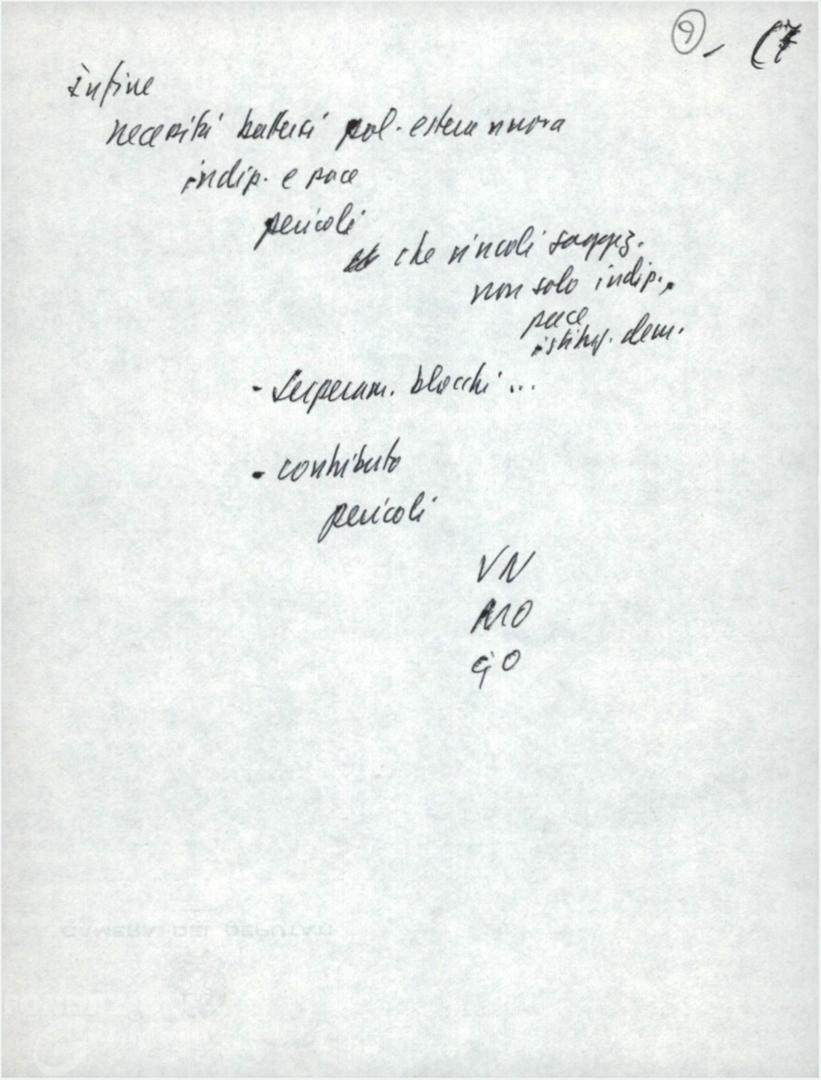 9) (7
infine
necessità battersi pol. estera nuova
indip. e pace
pericoli
che vincoli soggez.
non solo indip.,
pace
istituz. dem.
- Superam. blocchi ...
- contributo
pericoli
VN
MO
GO
CAMERA DEI DEPUTATI